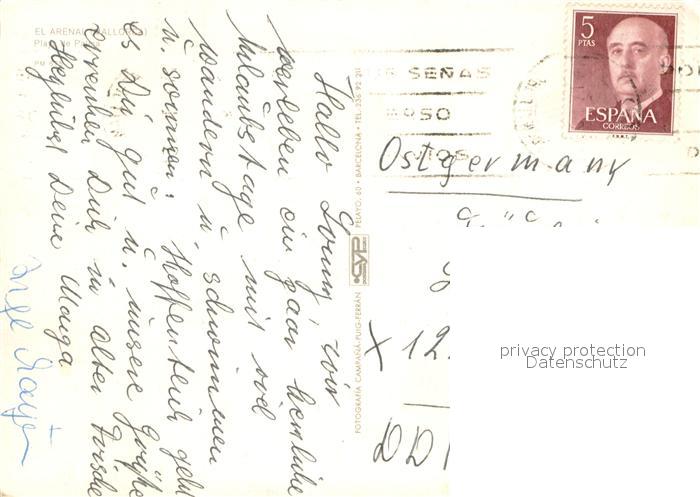 EL ARENAL (MALLORCA)
Hallo Conny, wir
verleben ein paar herrliche
Urlaubstage mit viel
wandern u. schwimmen
u. sonnen. Hoffentlich geht
es Dir gut u. unsere Grüße
erreichen Dich in alter Frische
Herzlichst Deine
FOTOGRAFIA CAMPAÑÁ-PUIG-FERRÁN
PELAYO, 60 • BARCELONA • TEL. 236 92 20
SEÑAS
5
PTAS
ESPAÑA
CORREOS
F.N.M.T.
Ostgermany
X 12
DD
privacy protection
Datenschutz